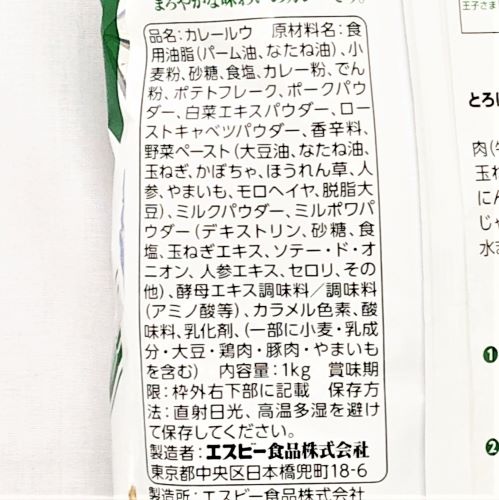 まろやかな味わい
品名:カレールウ 原材料名:食
用油脂(パーム油、なたね油)、小
麦粉、砂糖、食塩、カレー粉、でん
粉、ポテトフレーク、ポークパウ
ダー、白菜エキスパウダー、ロー
ストキャベツパウダー、香辛料、
野菜ペースト(大豆油、なたね油、
玉ねぎ、かぼちゃ、ほうれん草、人
参、やまいも、モロヘイヤ、脱脂大
豆)、ミルクパウダー、ミルポワパ
ウダー(デキストリン、砂糖、食
塩、玉ねぎエキス、ソテー・ド・オ
ニオン、人参エキス、セロリ、その
他)、酵母エキス調味料/調味料
(アミノ酸等)、カラメル色素、酸
味料、乳化剤、(一部に小麦・乳成
分・大豆・鶏肉・豚肉・やまいも
を含む) 内容量:1kg 賞味期
限:枠外右下部に記載 保存方
法:直射日光、高温多湿を避け
て保存してください。
製造者:エスビー食品株式会社
東京都中央区日本橋兜町18-6
製造所:エスビー食品株式会社
王子さま
とろ
肉(
玉ね
にん
じゃ
水
1
2